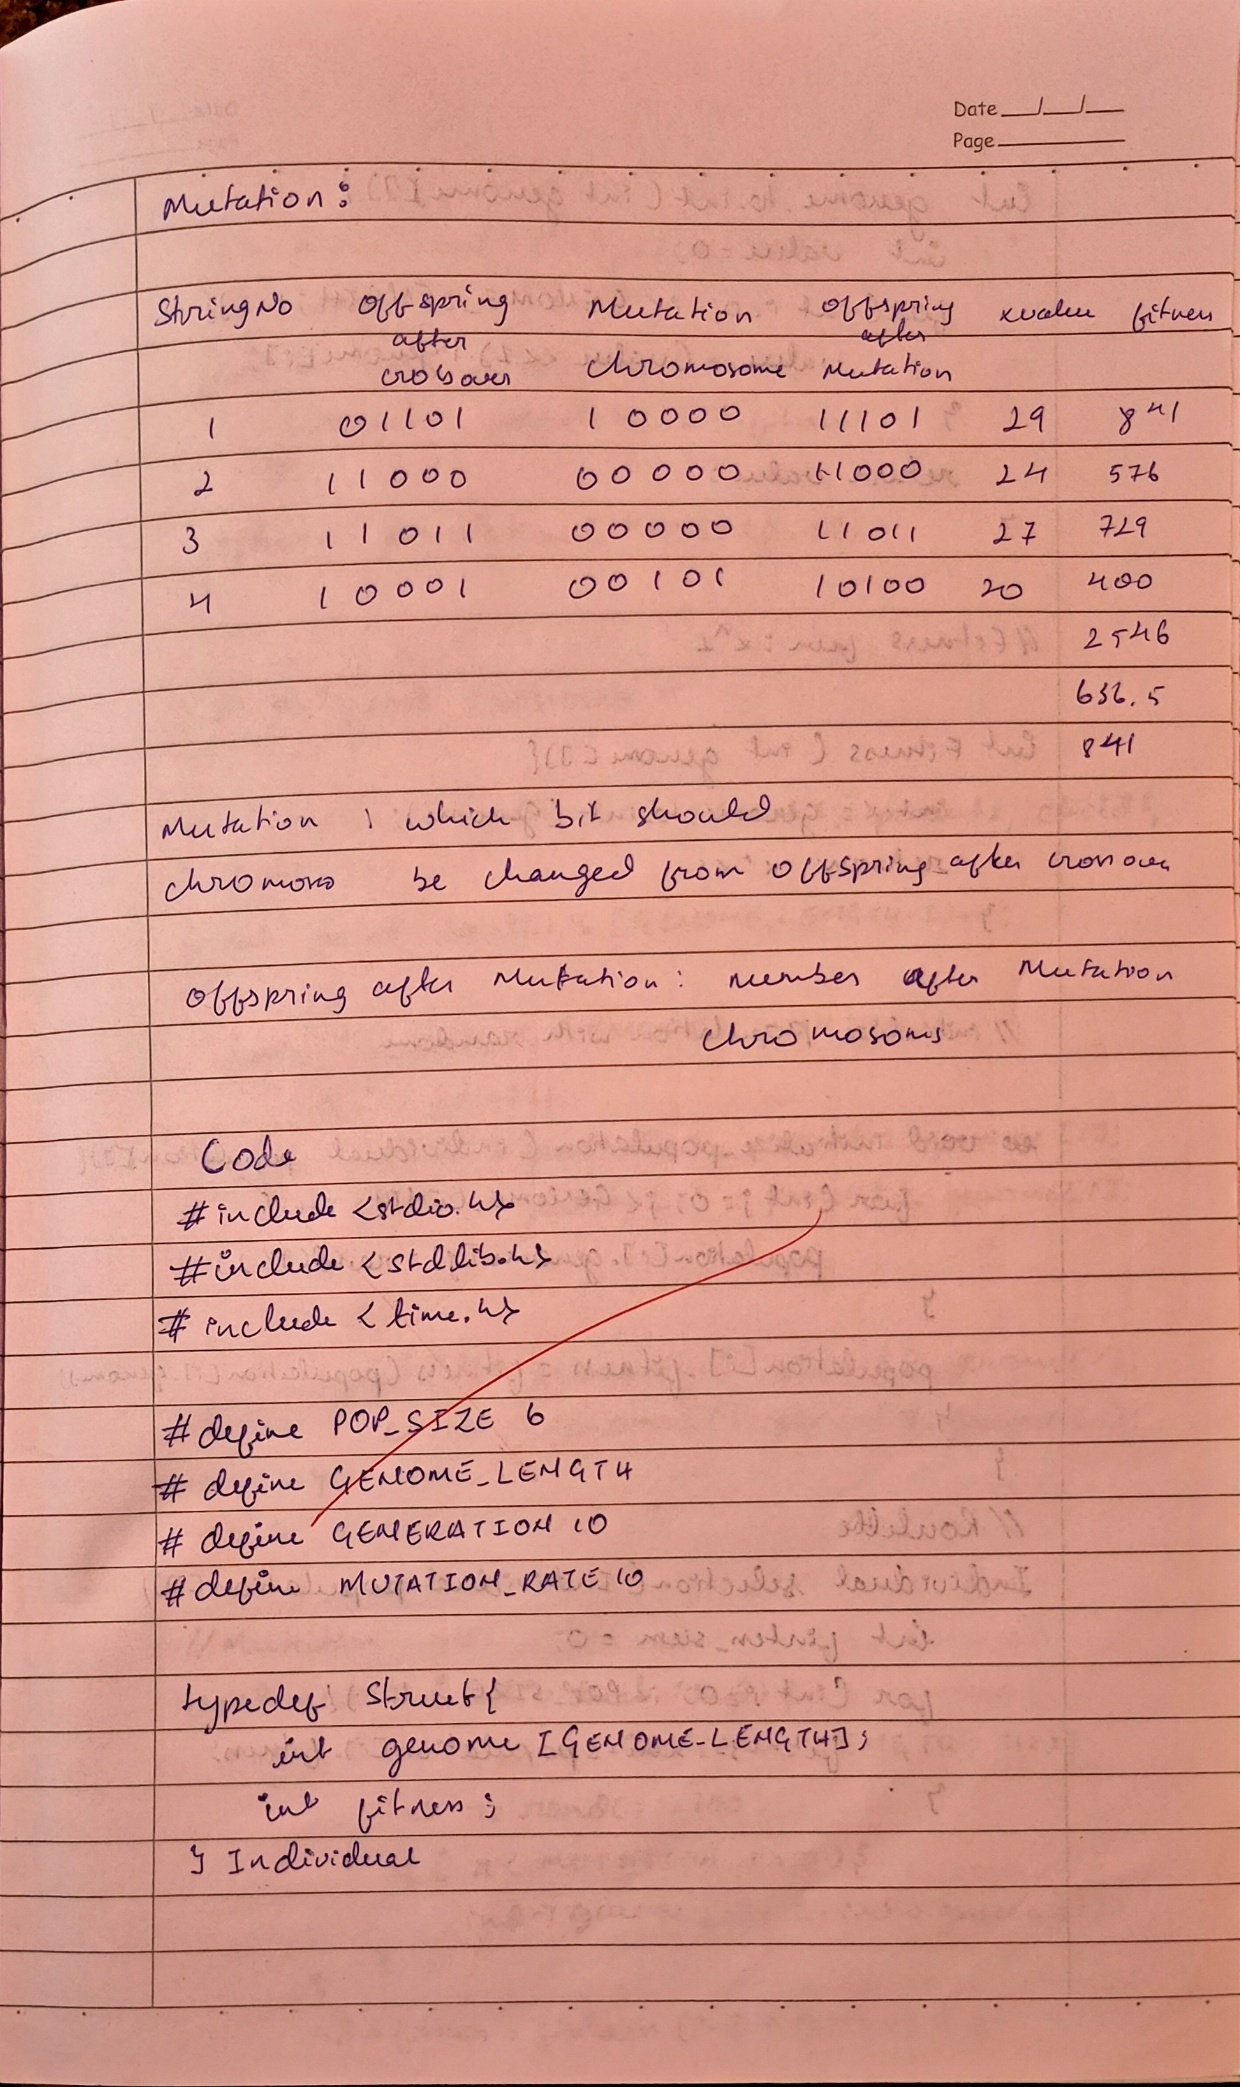 Date
Page
Mutation :
String No Offspring after crossover Mutation chromosome Offspring after Mutation x value fitness
1 01101 10000 11101 29 841
2 11000 00000 11000 24 576
3 11011 00000 11011 27 729
4 10001 00101 10100 20 400
2546
636.5
841
Mutation : which bit should
chromoso be changed from offspring after crossover
Offspring after Mutation : number after Mutation
chromosoms
Code
#include <stdio.h>
#include <stdlib.h>
# include < time.h>
# define POP_SIZE 6
# define GENOME_LENGTH
# define GENERATION 10
# define MUTATION_RATE 10
typedef struct{
int genome [GENOME_LENGTH];
int fitness ;
} Individual